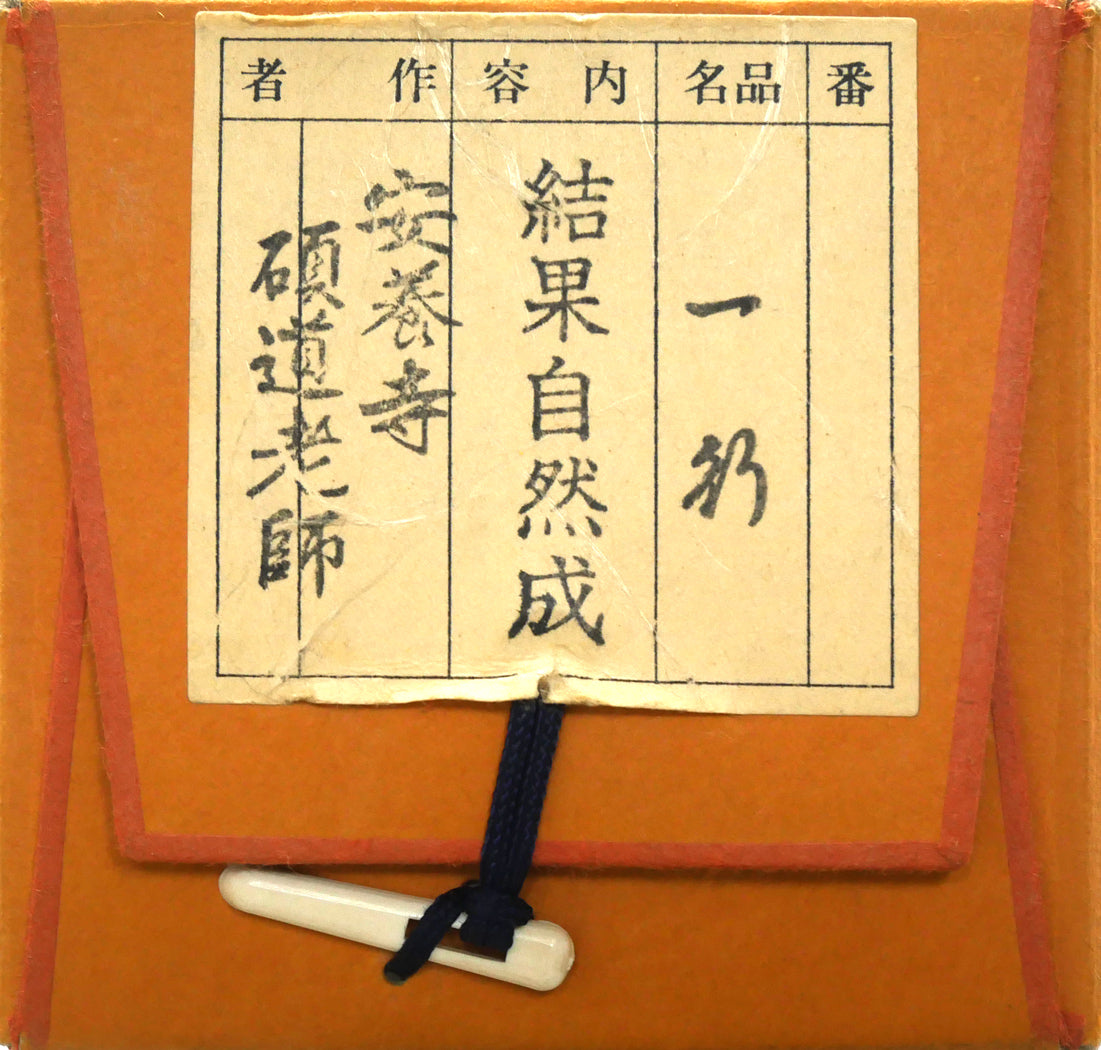 番
品名
内容
作者
一行
結果自然成
安養寺
碩道老師